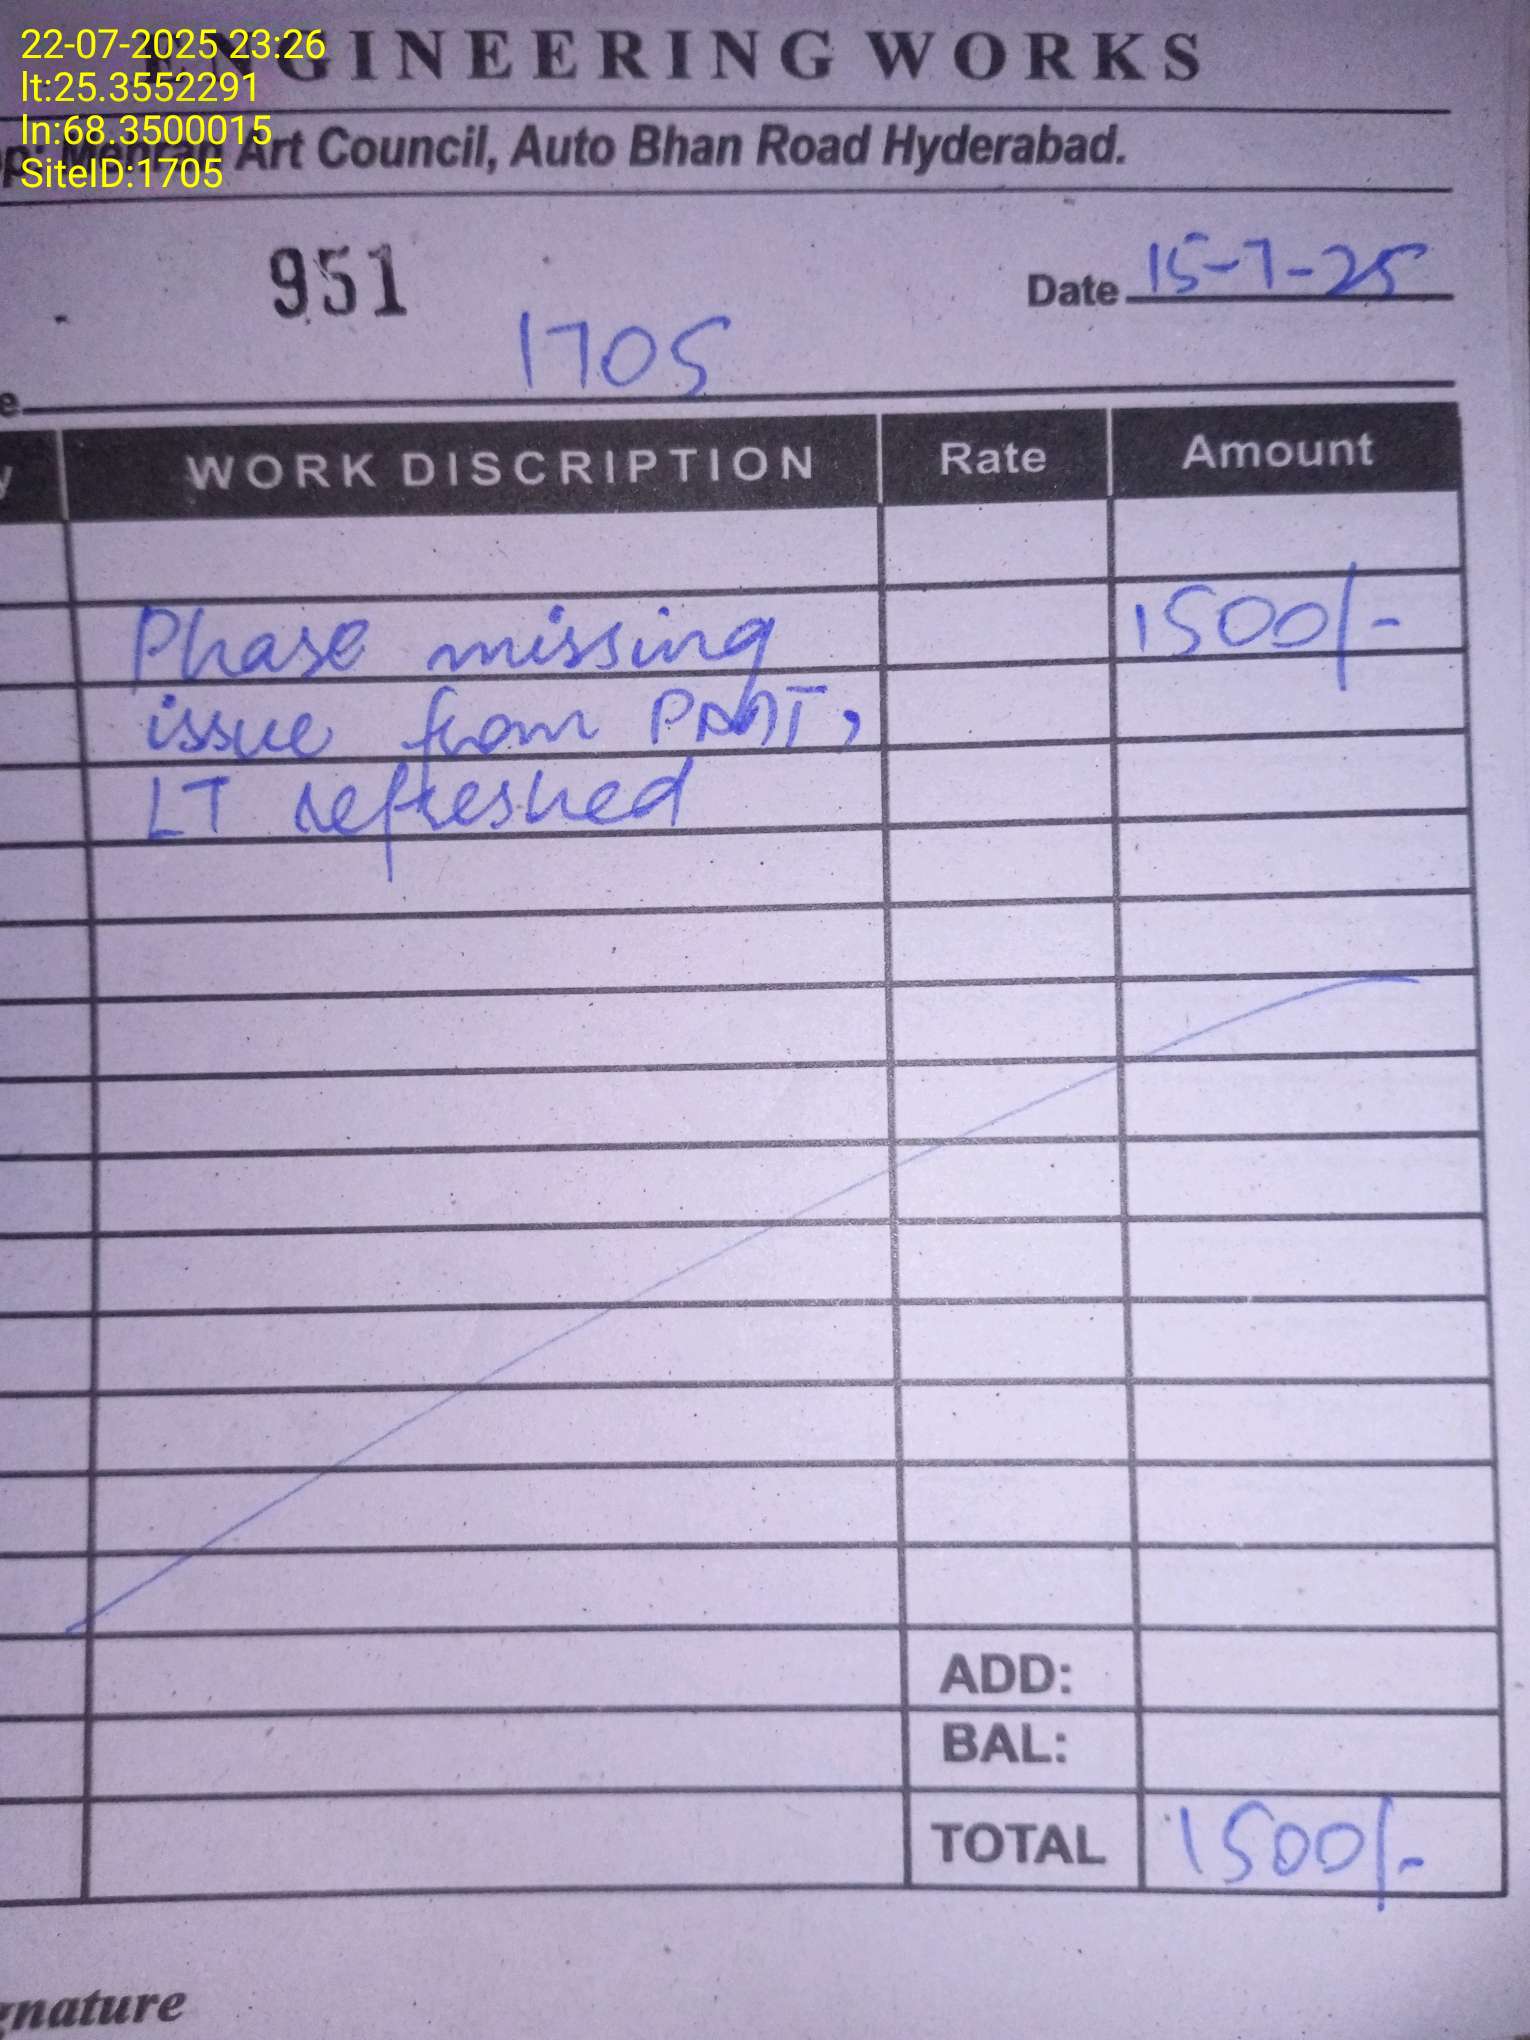 22-07-2025 23:26
lt:25.3552291
ln:68.3500015
SiteID:1705
ENGINEERING WORKS
Art Council, Auto Bhan Road Hyderabad.
951
Date 15-7-25
1705
WORK DISCRIPTION Rate Amount
Phase missing 1500/-
issue from
LT refreshed
ADD:
BAL:
TOTAL 1500/-